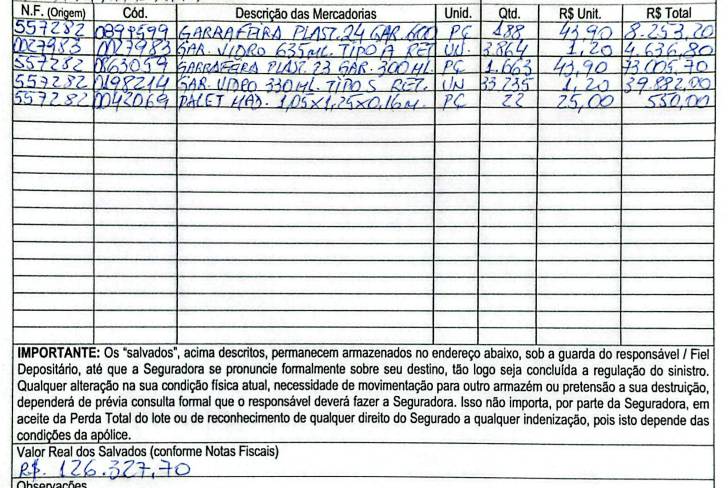 N.F. (Origem) Cód. Descrição das Mercadorias Unid. Qtd. R$ Unit. R$ Total
557282 0897599 GARRAFEIRA PLAST. 24 GAR. 600 PC 188 43,90 8.253,20
0027983 GAR. VIDRO 635ML. TIPO A RET. UN. 3.864 1,20 4.636,80
557282 0863059 GARRAFEIRA PLAST. 23 GAR. 300ML. PC 1.663 43,90 73.005,70
557282 0198214 GAR. VIDRO 330ML. TIPO S RET. UN 33.235 1,20 39.882,00
557282 0042069 PALET MAD. 1,05X1,25X0,16M. PC 22 25,00 550,00
IMPORTANTE: Os "salvados", acima descritos, permanecem armazenados no endereço abaixo, sob a guarda do responsável / Fiel
Depositário, até que a Seguradora se pronuncie formalmente sobre seu destino, tão logo seja concluída a regulação do sinistro.
Qualquer alteração na sua condição física atual, necessidade de movimentação para outro armazém ou pretensão a sua destruição,
dependerá de prévia consulta formal que o responsável deverá fazer a Seguradora. Isso não importa, por parte da Seguradora, em
aceite da Perda Total do lote ou de reconhecimento de qualquer direito do Segurado a qualquer indenização, pois isto depende das
condições da apólice.
Valor Real dos Salvados (conforme Notas Fiscais)
R$. 126.327,70
Observações